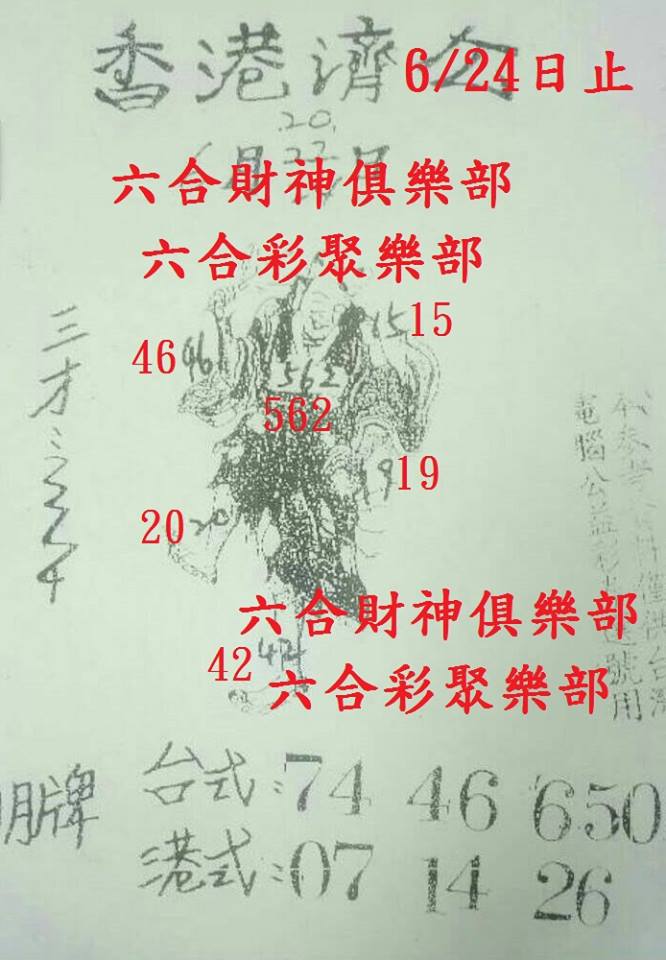 香港濟公
6/24日止
20.
22
月 日
六合財神俱樂部
六合彩聚樂部
15 15
46 46
562
562
三才
19 19
20 20
電腦公益彩
號用
六合財神俱樂部
42 42
六合彩聚樂部
明牌
台式:74 46 650
港式:07 14 26